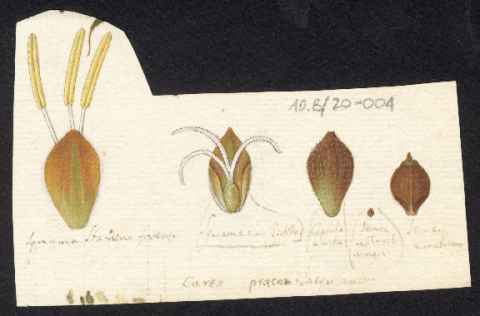 10.8/20-004
Squama Stamina ferens
Squama cum Pistillo
Capsula aucta
Semen naturali magn.
Semen auctum
Carex præcox